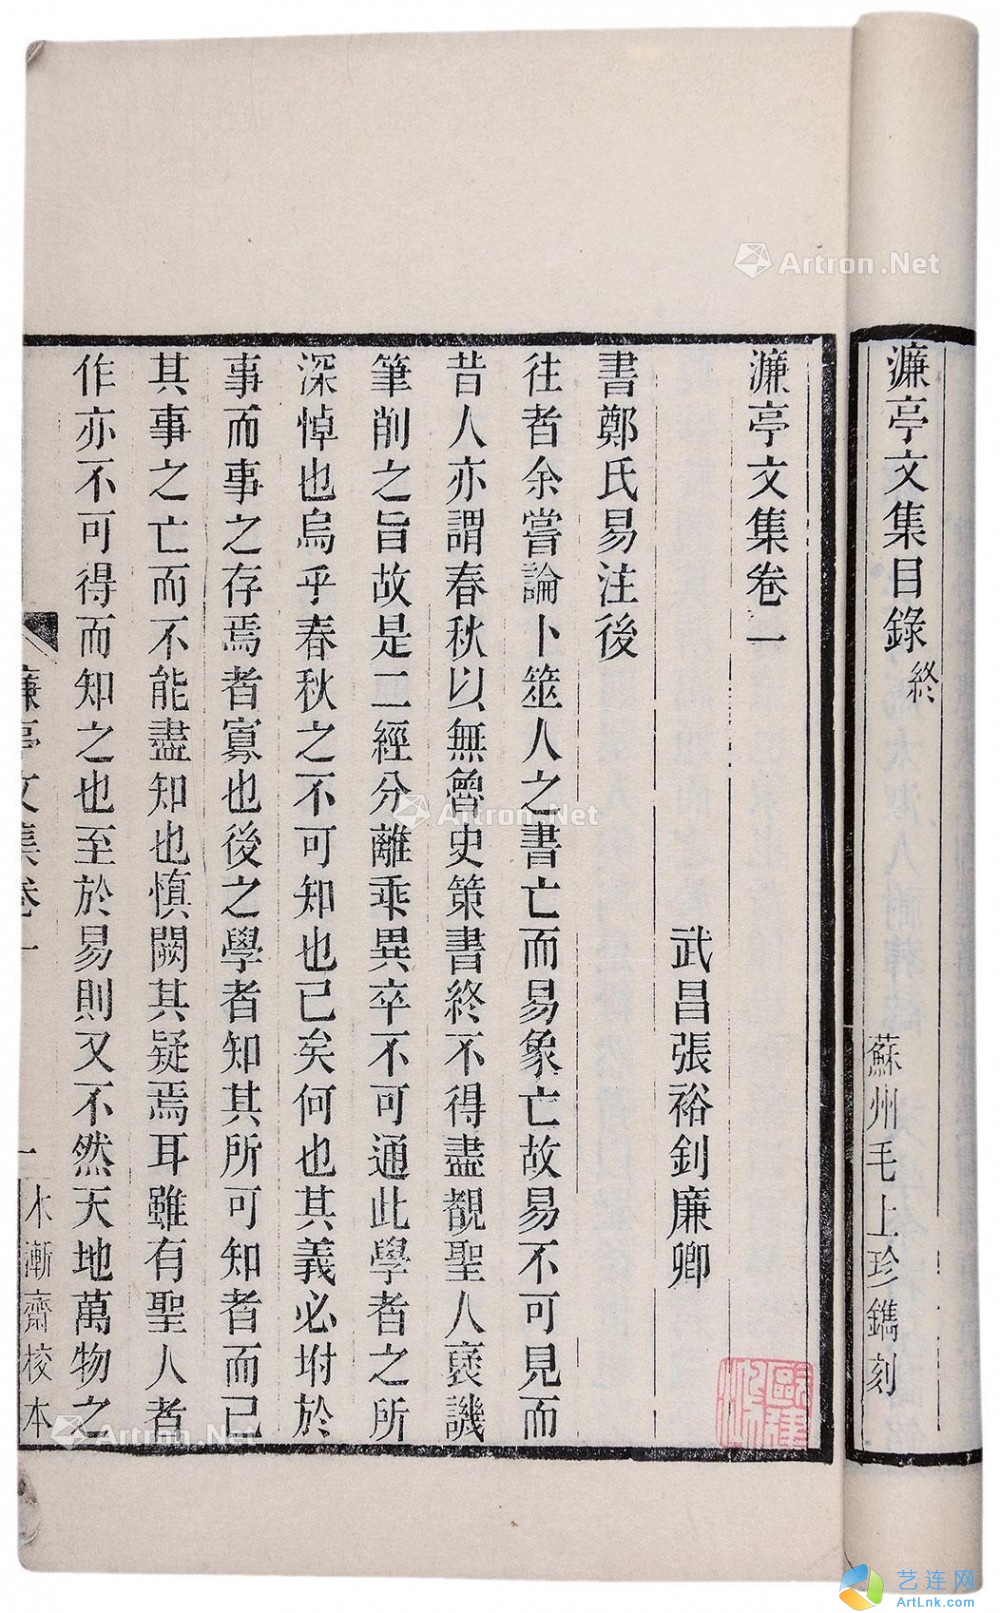 濂亭文集目錄終
蘇州毛上珍鐫刻
濂亭文集卷一
武昌張裕釗廉卿
書鄭氏易注後
往者余嘗論卜筮人之書亡而易象亡故易不可見而
昔人亦謂春秋以無魯史策書終不得盡覩聖人褒譏
筆削之旨故是二經分離乖異卒不可通此學者之所
深悼也烏乎春秋之不可知也已矣何也其義必坿於
事而事之存焉者寡也後之學者知其所可知者而已
其事之亡而不能盡知也慎闕其疑焉耳雖有聖人者
作亦不可得而知之也至於易則又不然天地萬物之
濂亭文集卷一
一
木漸齋校本
Artron.Net
Artron.Net
Artron.Net
艺连网
ArtLnk.com